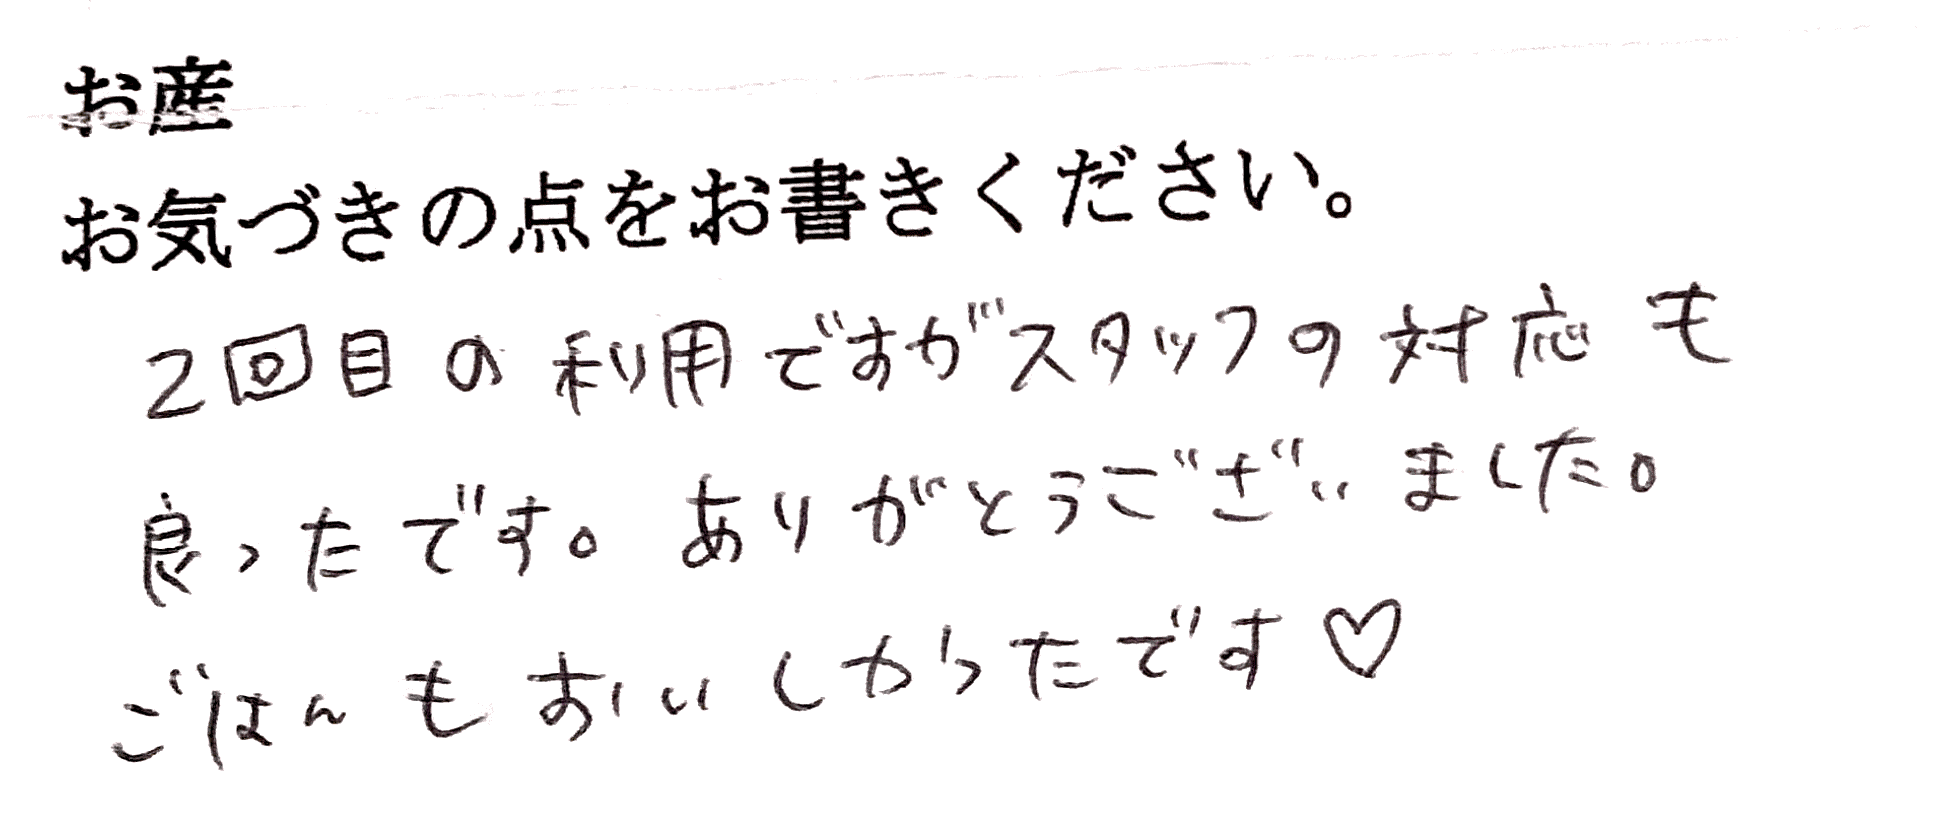 お産
お気づきの点をお書きください。
2回目の利用ですがスタッフの対応も
良ったです。ありがとうございました。
ごはんもおいしかったです♡